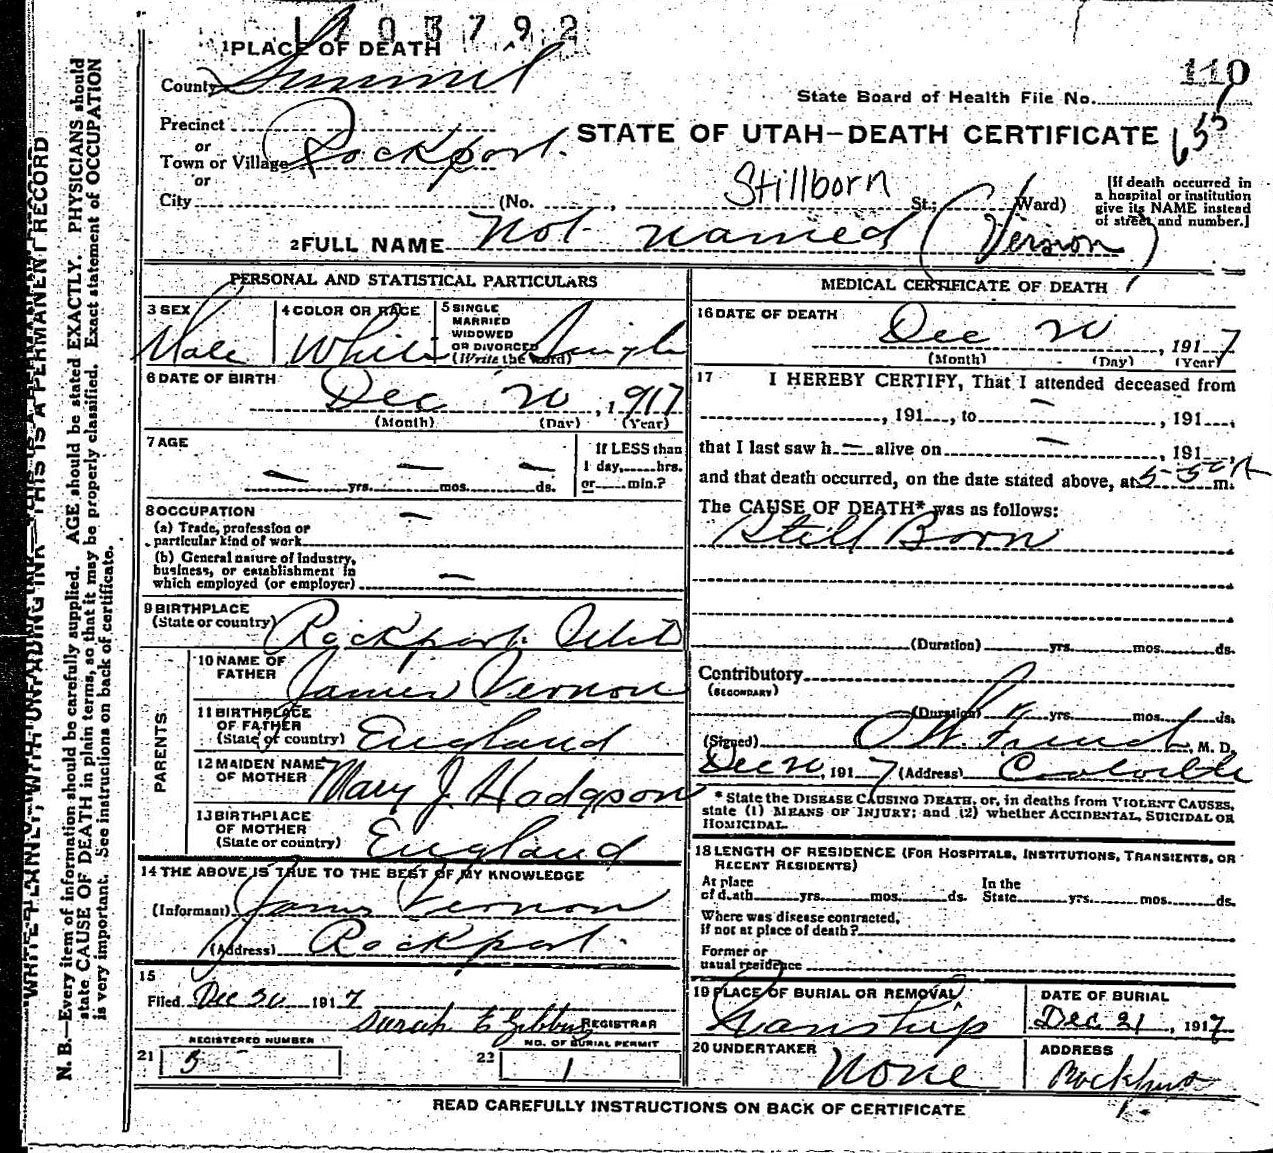 1703792
1 PLACE OF DEATH
110
County Summit
State Board of Health File No.
Precinct
655
or
STATE OF UTAH—DEATH CERTIFICATE
Town or Village Rockport.
or
Stillborn
City (No. , St.; Ward)
[If death occurred in a hospital or institution give its NAME instead of street and number.]
2 FULL NAME Not named (Vernon)
PERSONAL AND STATISTICAL PARTICULARS
3 SEX Male
4 COLOR OR RACE White
5 SINGLE MARRIED WIDOWED OR DIVORCED (Write the word) Single
6 DATE OF BIRTH Dec 20, 1917
(Month) (Day) (Year)
7 AGE
— yrs. — mos. — ds.
If LESS than 1 day, hrs. or min.?
8 OCCUPATION
(a) Trade, profession or particular kind of work —
(b) General nature of industry, business, or establishment in which employed (or employer) —
9 BIRTHPLACE
(State or country) Rockport. Utah
PARENTS
10 NAME OF FATHER James Vernon
11 BIRTHPLACE OF FATHER (State of country) England
12 MAIDEN NAME OF MOTHER Mary J. Hodgson
13 BIRTHPLACE OF MOTHER (State or country) England
14 THE ABOVE IS TRUE TO THE BEST OF MY KNOWLEDGE
(Informant) James Vernon
(Address) Rockport.
15
Filed Dec 30 1917
Sarah E Gibbons REGISTRAR
REGISTERED NUMBER
21 3
NO. OF BURIAL PERMIT
22 1
MEDICAL CERTIFICATE OF DEATH
16 DATE OF DEATH Dec 20, 1917
(Month) (Day) (Year)
17 I HEREBY CERTIFY, That I attended deceased from
, 191 , to — , 191 ,
that I last saw h — alive on — , 191 ,
and that death occurred, on the date stated above, at 5-50 A m.
The CAUSE OF DEATH* was as follows:
Still Born
(Duration) yrs. mos. ds.
Contributory
(SECONDARY)
(Duration) yrs. mos. ds.
(Signed) , M. D.
Dec 20, 1917 (Address) Coalville
* State the DISEASE CAUSING DEATH, or, in deaths from VIOLENT CAUSES, state (1) MEANS OF INJURY; and (2) whether ACCIDENTAL, SUICIDAL OR HOMICIDAL.
18 LENGTH OF RESIDENCE (FOR HOSPITALS, INSTITUTIONS, TRANSIENTS, OR RECENT RESIDENTS)
At place of death yrs. mos. ds. In the State yrs. mos. ds.
Where was disease contracted, if not at place of death?
Former or usual residence
19 PLACE OF BURIAL OR REMOVAL Wanship
DATE OF BURIAL Dec. 21, 1917
20 UNDERTAKER None
ADDRESS Rockport
READ CAREFULLY INSTRUCTIONS ON BACK OF CERTIFICATE
WRITE PLAINLY, WITH UNFADING INK—THIS IS A PERMANENT RECORD
N. B.—Every item of information should be carefully supplied. AGE should be stated EXACTLY. PHYSICIANS should
state CAUSE OF DEATH in plain terms, so that it may be properly classified. Exact statement of OCCUPATION
is very important. See instructions on back of certificate.